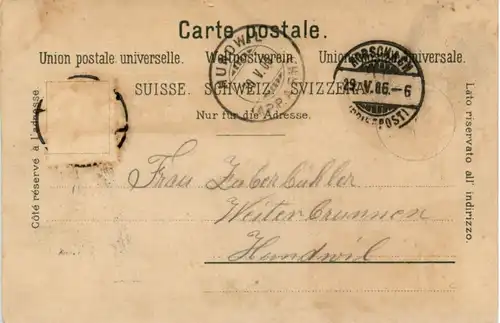 Carte postale.
Union postale universelle. Weltpostverein. Unione postale universale.
SUISSE. SCHWEIZ. SVIZZERA.
Nur für die Adresse.
Côté réservé à l'adresse
Lato riservato all' indirizzo.
HUNDWIL
(APPZ.)
RORSCHACH
29. V. 06. – 6
Frau Zuberbühler
Weiterbrunnen
Hundwil